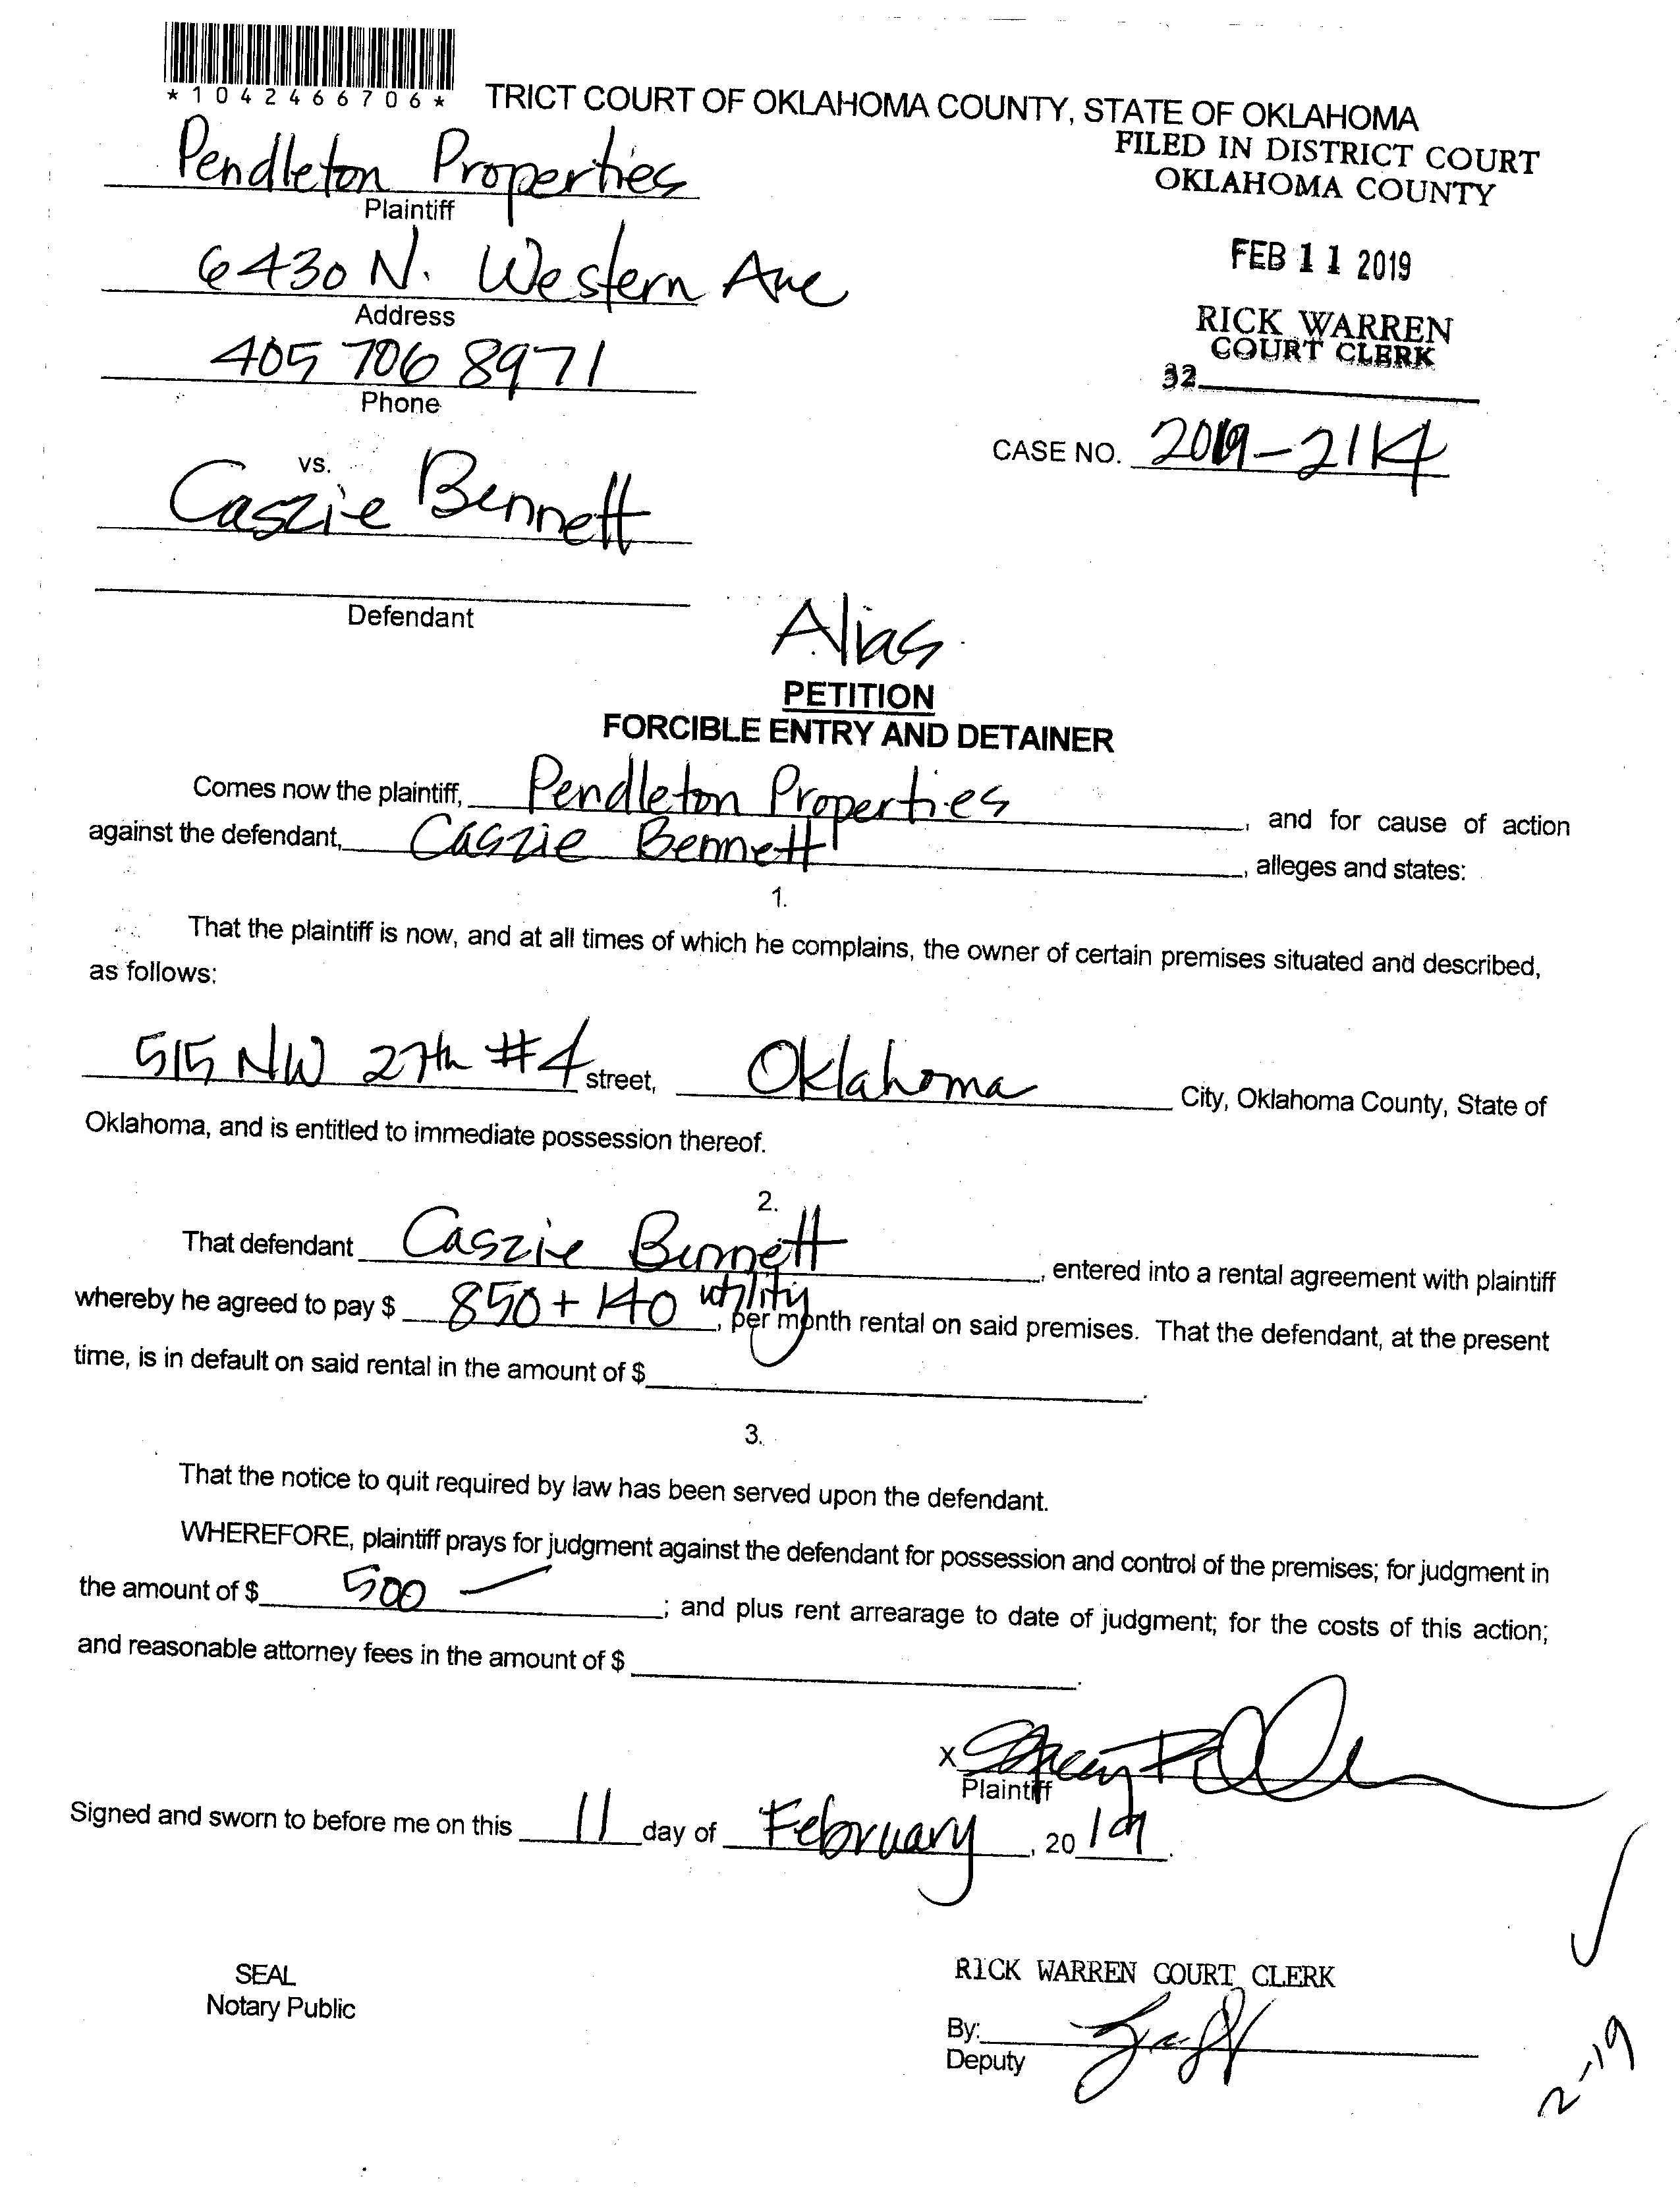 *1042466706*
TRICT COURT OF OKLAHOMA COUNTY, STATE OF OKLAHOMA
FILED IN DISTRICT COURT
OKLAHOMA COUNTY
Pendleton Properties
Plaintiff
FEB 11 2019
6430 N. Western Ave
Address
RICK WARREN
COURT CLERK
405 706 8971
Phone
32
CASE NO. 2019-2114
vs.
Caszie Bennett
Defendant
Alias
PETITION
FORCIBLE ENTRY AND DETAINER
Comes now the plaintiff, Pendleton Properties, and for cause of action
against the defendant, Caszie Bennett, alleges and states:
1.
That the plaintiff is now, and at all times of which he complains, the owner of certain premises situated and described,
as follows:
515 NW 27th #4 street, Oklahoma City, Oklahoma County, State of
Oklahoma, and is entitled to immediate possession thereof.
2.
That defendant Caszie Bennett, entered into a rental agreement with plaintiff
whereby he agreed to pay $ 850 + 140 utility, per month rental on said premises. That the defendant, at the present
time, is in default on said rental in the amount of $ .
3.
That the notice to quit required by law has been served upon the defendant.
WHEREFORE, plaintiff prays for judgment against the defendant for possession and control of the premises; for judgment in
the amount of $ 500 —; and plus rent arrearage to date of judgment; for the costs of this action;
and reasonable attorney fees in the amount of $ .
X
Plaintiff
Signed and sworn to before me on this 11 day of February, 2019.
SEAL
Notary Public
RICK WARREN COURT CLERK
By:
Deputy
2-19